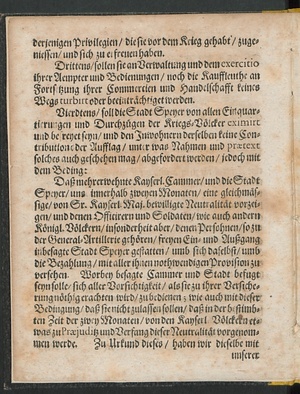 derjenigen Privilegien / die sie vor dem Krieg gehabt / zuge-
niessen / und sich zu erfreuen haben.
Drittens / sollen sie an Verwaltung und dem exercitio
ihrer Aempter und Bedienungen / noch die Kauffleuthe an
Fortsetzung ihrer Commercien und Handelschafft keines
Wegs turbirt oder beeinträchtiget werden.
Vierdtens / soll die Stadt Speyer von allen Einquar-
tierungen und Durchzügen der Kriegs-Völcker eximirt
und befreyet seyn / und den Inwohnern derselben keine Con-
tribution oder Aufflag / unter was Nahmen und prætext
solches auch geschehen mag / abgefordert werden / jedoch mit
dem Beding:
Daß mehrerwehnte Kayserl. Cammer / und die Stadt
Speyer / uns innerhalb zweyen Monaten / eine gleichmäs-
sige / von Sr. Kayserl. Maj. bewilligte Neutralität vorzei-
gen / und denen Officirern und Soldaten / wie auch andern
Königl. Völckern / insonderheit aber / denen Persohnen / so zu
der General-Artillerie gehören / freyen Ein- und Außgang
in besagte Stadt Speyer gestatten / umb sich daselbst / umb
die Bezahlung / mit aller ihnen nothwendigen Provision zu
versehen. Worbey besagte Cammer und Stadt befugt
seyn solle / sich aller Vorsichtigkeit / als sie zu ihrer Versiche-
rung nöthig erachten wird / zu bedienen / wie auch mit dieser
Bedingung / daß sie nicht zulassen sollen / daß in der bestimb-
ten Zeit der zwey Monaten / von den Kayserl. Völckern et-
was zu Præjuditz und Verfang dieser Neutralität vorgenom-
men werde. Zu Urkund dieses / haben wir dieselbe mit
unserer